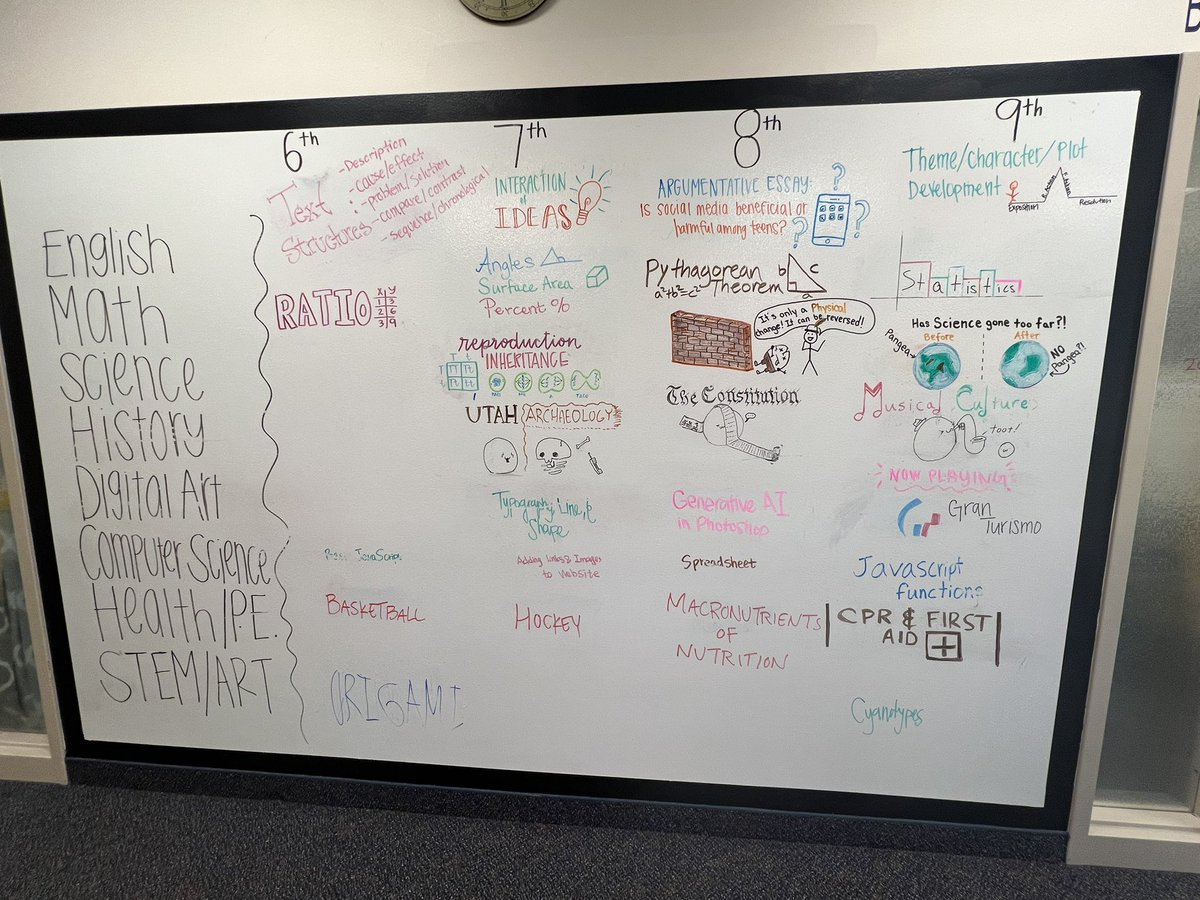 6th
7th
8th
9th
English
Math
Science
History
Digital Art
Computer Science
Health/P.E.
STEM/ART
Text
Structures
-Description
-cause/effect
-problem/solution
-compare/contrast
-sequence/chronological
RATIO
X Y
1 3
2 6
3 9
JavaScript
BASKETBALL
ORIGAMI
INTERACTION
of
IDEAS
Angles
Surface Area
Percent %
reproduction
INHERITANCE
T t
T TT Tt
t Tt tt
UTAH ARCHAEOLOGY
Typography, Line, &
Shape
Adding links & Images
to website
HOCKEY
ARGUMENTATIVE ESSAY:
Is social media beneficial or
harmful among teens?
? ? ?
Pythagorean
Theorem
a²+b²=c²
b c
a
It's only a Physical
change! It can be reversed!
The Constitution
Generative AI
in Photoshop
Spreadsheet
MACRONUTRIENTS
OF
NUTRITION
Theme/Character/Plot
Development
Exposition
R. Action
F. Action
Resolution
Statistics
Has Science gone too far?!
Before
After
Pangea
NO
Pangea?!
Musical Cultures
toot!
NOW PLAYING
Gran
Turismo
Javascript
functions
CPR & FIRST
AID
Cyanotypes